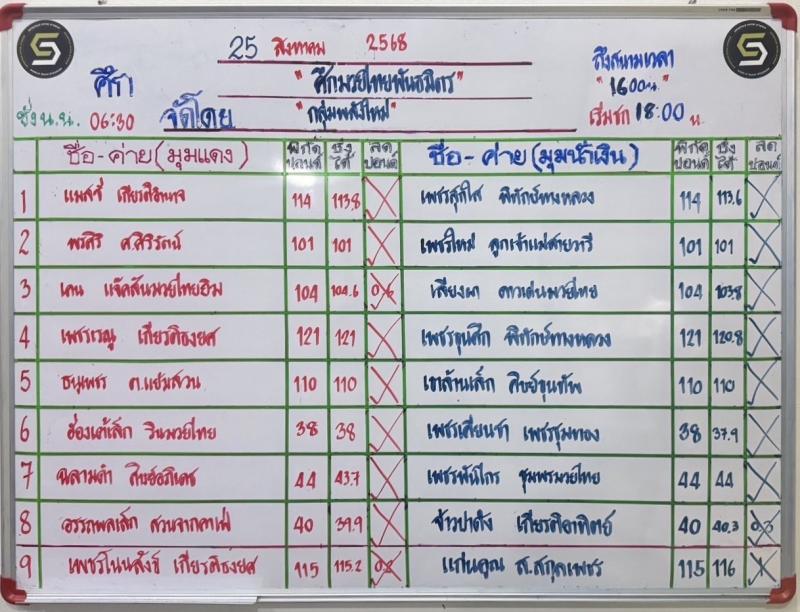 25 สิงหาคม 2568
ศึก "ศึกมวยไทยพันธมิตร" ถึงสนามเวลา
"16.00น."
ชั่ง น.น. 06:30 จัดโดย "กลุ่มพลังใหม่" เริ่มชก 18:00 น.
ชื่อ-ค่าย (มุมแดง) พิกัดปอนด์ ชั่งได้ ลดปอนด์ ชื่อ-ค่าย (มุมน้ำเงิน) พิกัดปอนด์ ชั่งได้ ลดปอนด์
1 เกียรติอำนาจ 114 113.8 เพชรสุกใส พิทักษ์ทางหลวง 114 113.6
2 พรศิริ ศ.สิริรัตน์ 101 101 เพชรใหม่ ลูกเจ้าแม่สายวารี 101 101
3 เคน แจ๊คสันมวยไทยยิม 104 104.6 0.6 เสียงผา ดาวเด่นมวยไทย 104 103.8
4 เพชรเรณู เกียรติธงยศ 121 121 เพชรขุนศึก พิทักษ์ทางหลวง 121 120.8
5 ธนูเพชร ต.แย้มสวน 110 110 เขาล้านเล็ก ศิษย์ขุนทัพ 110 110
6 ฮ่องเต้เล็ก วินมวยไทย 38 38 เพชรเตียนชา เพชรชุมทอง 38 37.9
7 ฉลามดำ สิงห์อภิเดช 44 43.7 เพชรพันไกร ชุมพรมวยไทย 44 44
8 อรรถพลเล็ก สวนจากคาเฟ่ 40 39.9 จ้าวป่าดัง เกียรติอาทิตย์ 40 40.3 0.3
9 เพชรโนนสังข์ เกียรติธงยศ 115 115.2 0.2 แก่นคูณ ส.สกุลเพชร 115 116 1